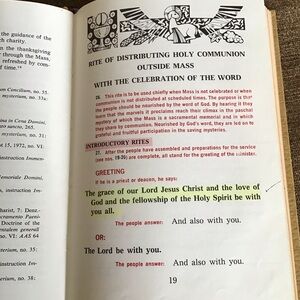 the guidance of the
h charity.
the thanksgiving
through the Mass,
refreshed by com-
of time."¹⁴
Concilium, no. 55.
mysterium, no. 33a:
in Cena Domini,
sancto, 265.
mysterium, no. 31:
t 15, 1972, no. VI:
instruction Immen-
Memoriale Domini,
instruction Im-
arist, 7: Denz.
Sacramento Paeni-
Doctrine of the
entalem generali
no. VI: AAS 64
mysterium, no. 35:
instruction Im-
mysterium, no. 38:
RITE OF DISTRIBUTING HOLY COMMUNION
OUTSIDE MASS
WITH THE CELEBRATION OF THE WORD
26. This rite is to be used chiefly when Mass is not celebrated or when
communion is not distributed at scheduled times. The purpose is that
the people should be nourished by the word of God. By hearing it they
learn that the marvels it proclaims reach their climax in the paschal
mystery of which the Mass is a sacramental memorial and in which
they share by communion. Nourished by God's word, they are led on to
grateful and fruitful participation in the saving mysteries.
INTRODUCTORY RITES
27. After the people have assembled and preparations for the service
(see nos. 19-20) are complete, all stand for the greeting of the minister.
GREETING
If he is a priest or deacon, he says:
The grace of our Lord Jesus Christ and the love of
God and the fellowship of the Holy Spirit be with
you all.
The people answer: And also with you.
OR:
The Lord be with you.
The people answer: And also with you.
19